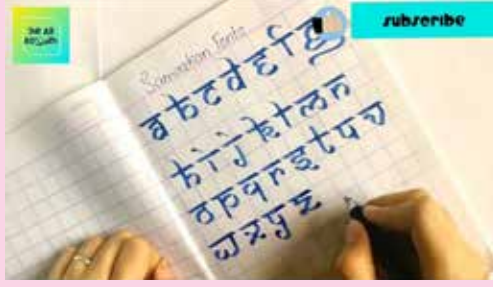 subscribe
Samarkan Fonts
a b c d e f g
h i j k l m n
o p q r s t u v
w x y z